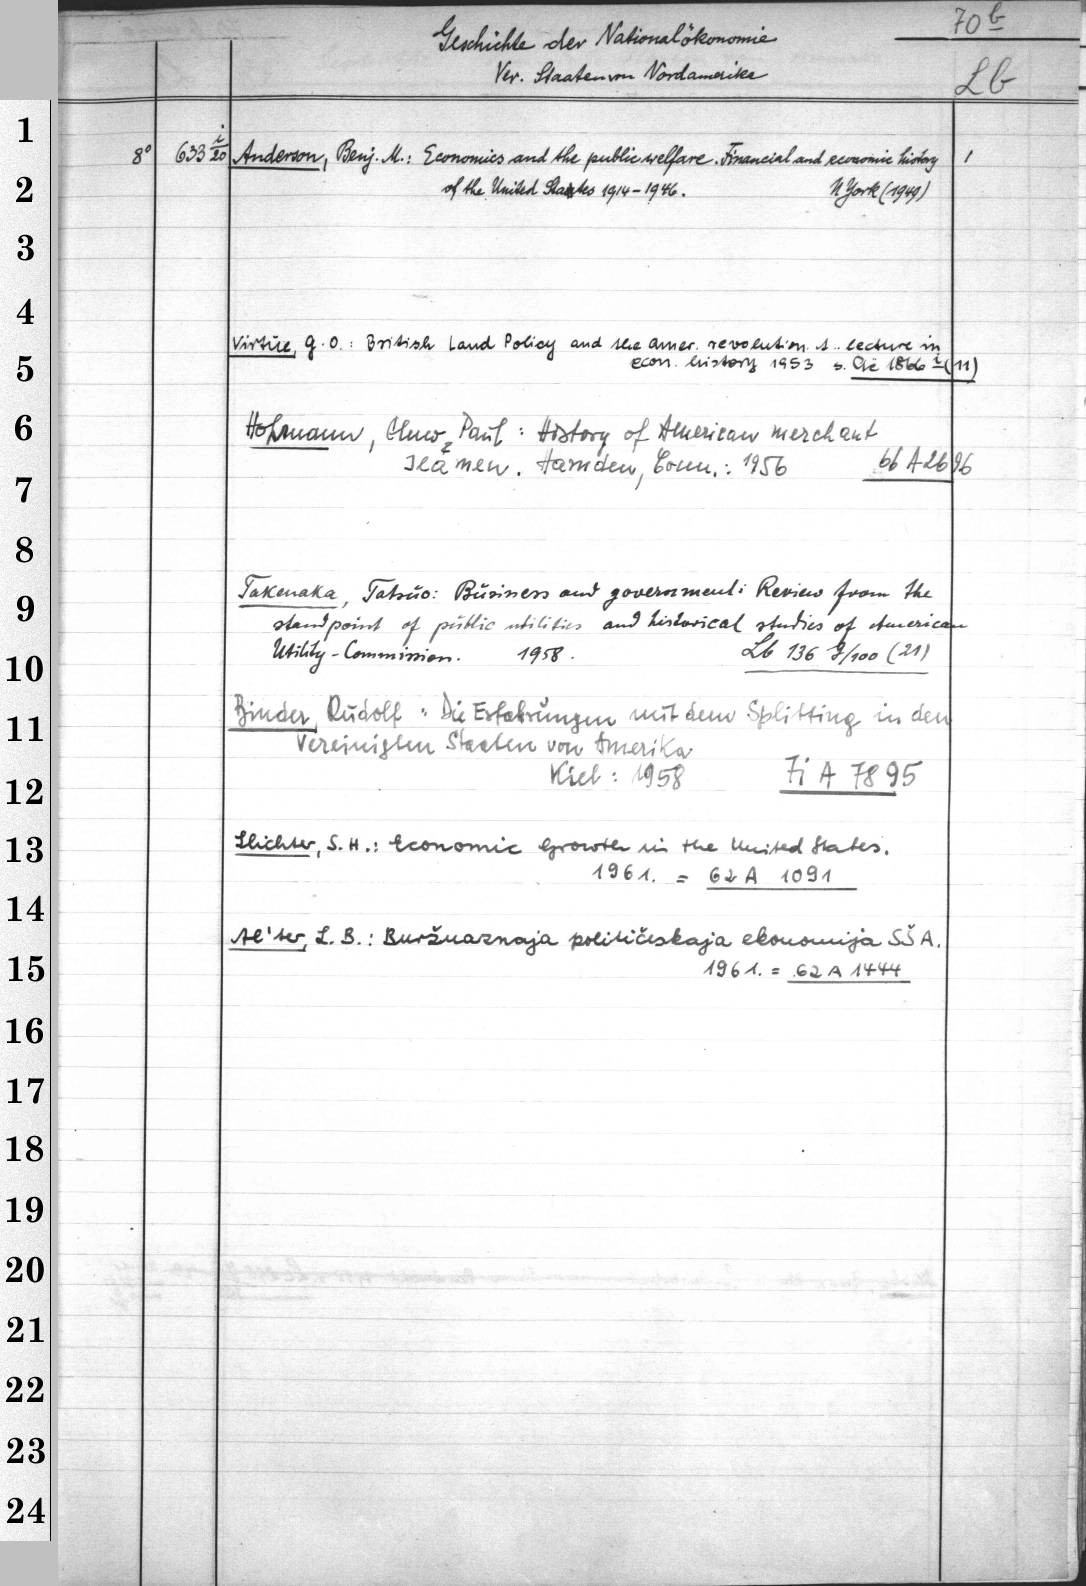 70 b
Geschichte der Nationalökonomie
Ver. Staaten von Nordamerika
Lb
1
8° 633 i/20 Anderson, Benj. M.: Economics and the public welfare. Financial and economic history 1
2 of the United States 1914-1946. N York (1949)
3
4
Virtue, G. O.: British Land Policy and the amer. revolution. A lecture in
5 econ. history 1953 s. 1866 i (11)
6 Hohmann, Elmo Paul: History of American merchant
seamen. Hamden, Conn.: 1956 66 A 2696
7
8
9 Takenaka, Tatsuo: Business and government: Review from the
standpoint of public utilities and historical studies of American
10 Utility-Commission. 1958. Lb 136 g/100 (21)
11 Binder, Rudolf: Die Erfahrungen mit dem Splitting in den
Vereinigten Staaten von Amerika
12 Kiel: 1958 7i A 7895
13 Slichter, S. H.: Economic Growth in the United States.
1961. = 62 A 1091
14
Al'ter, L. B.: Buržuaznaja političeskaja ekonomija SŠA.
15 1961. = 62 A 1444
16
17
18
19
20
21
22
23
24